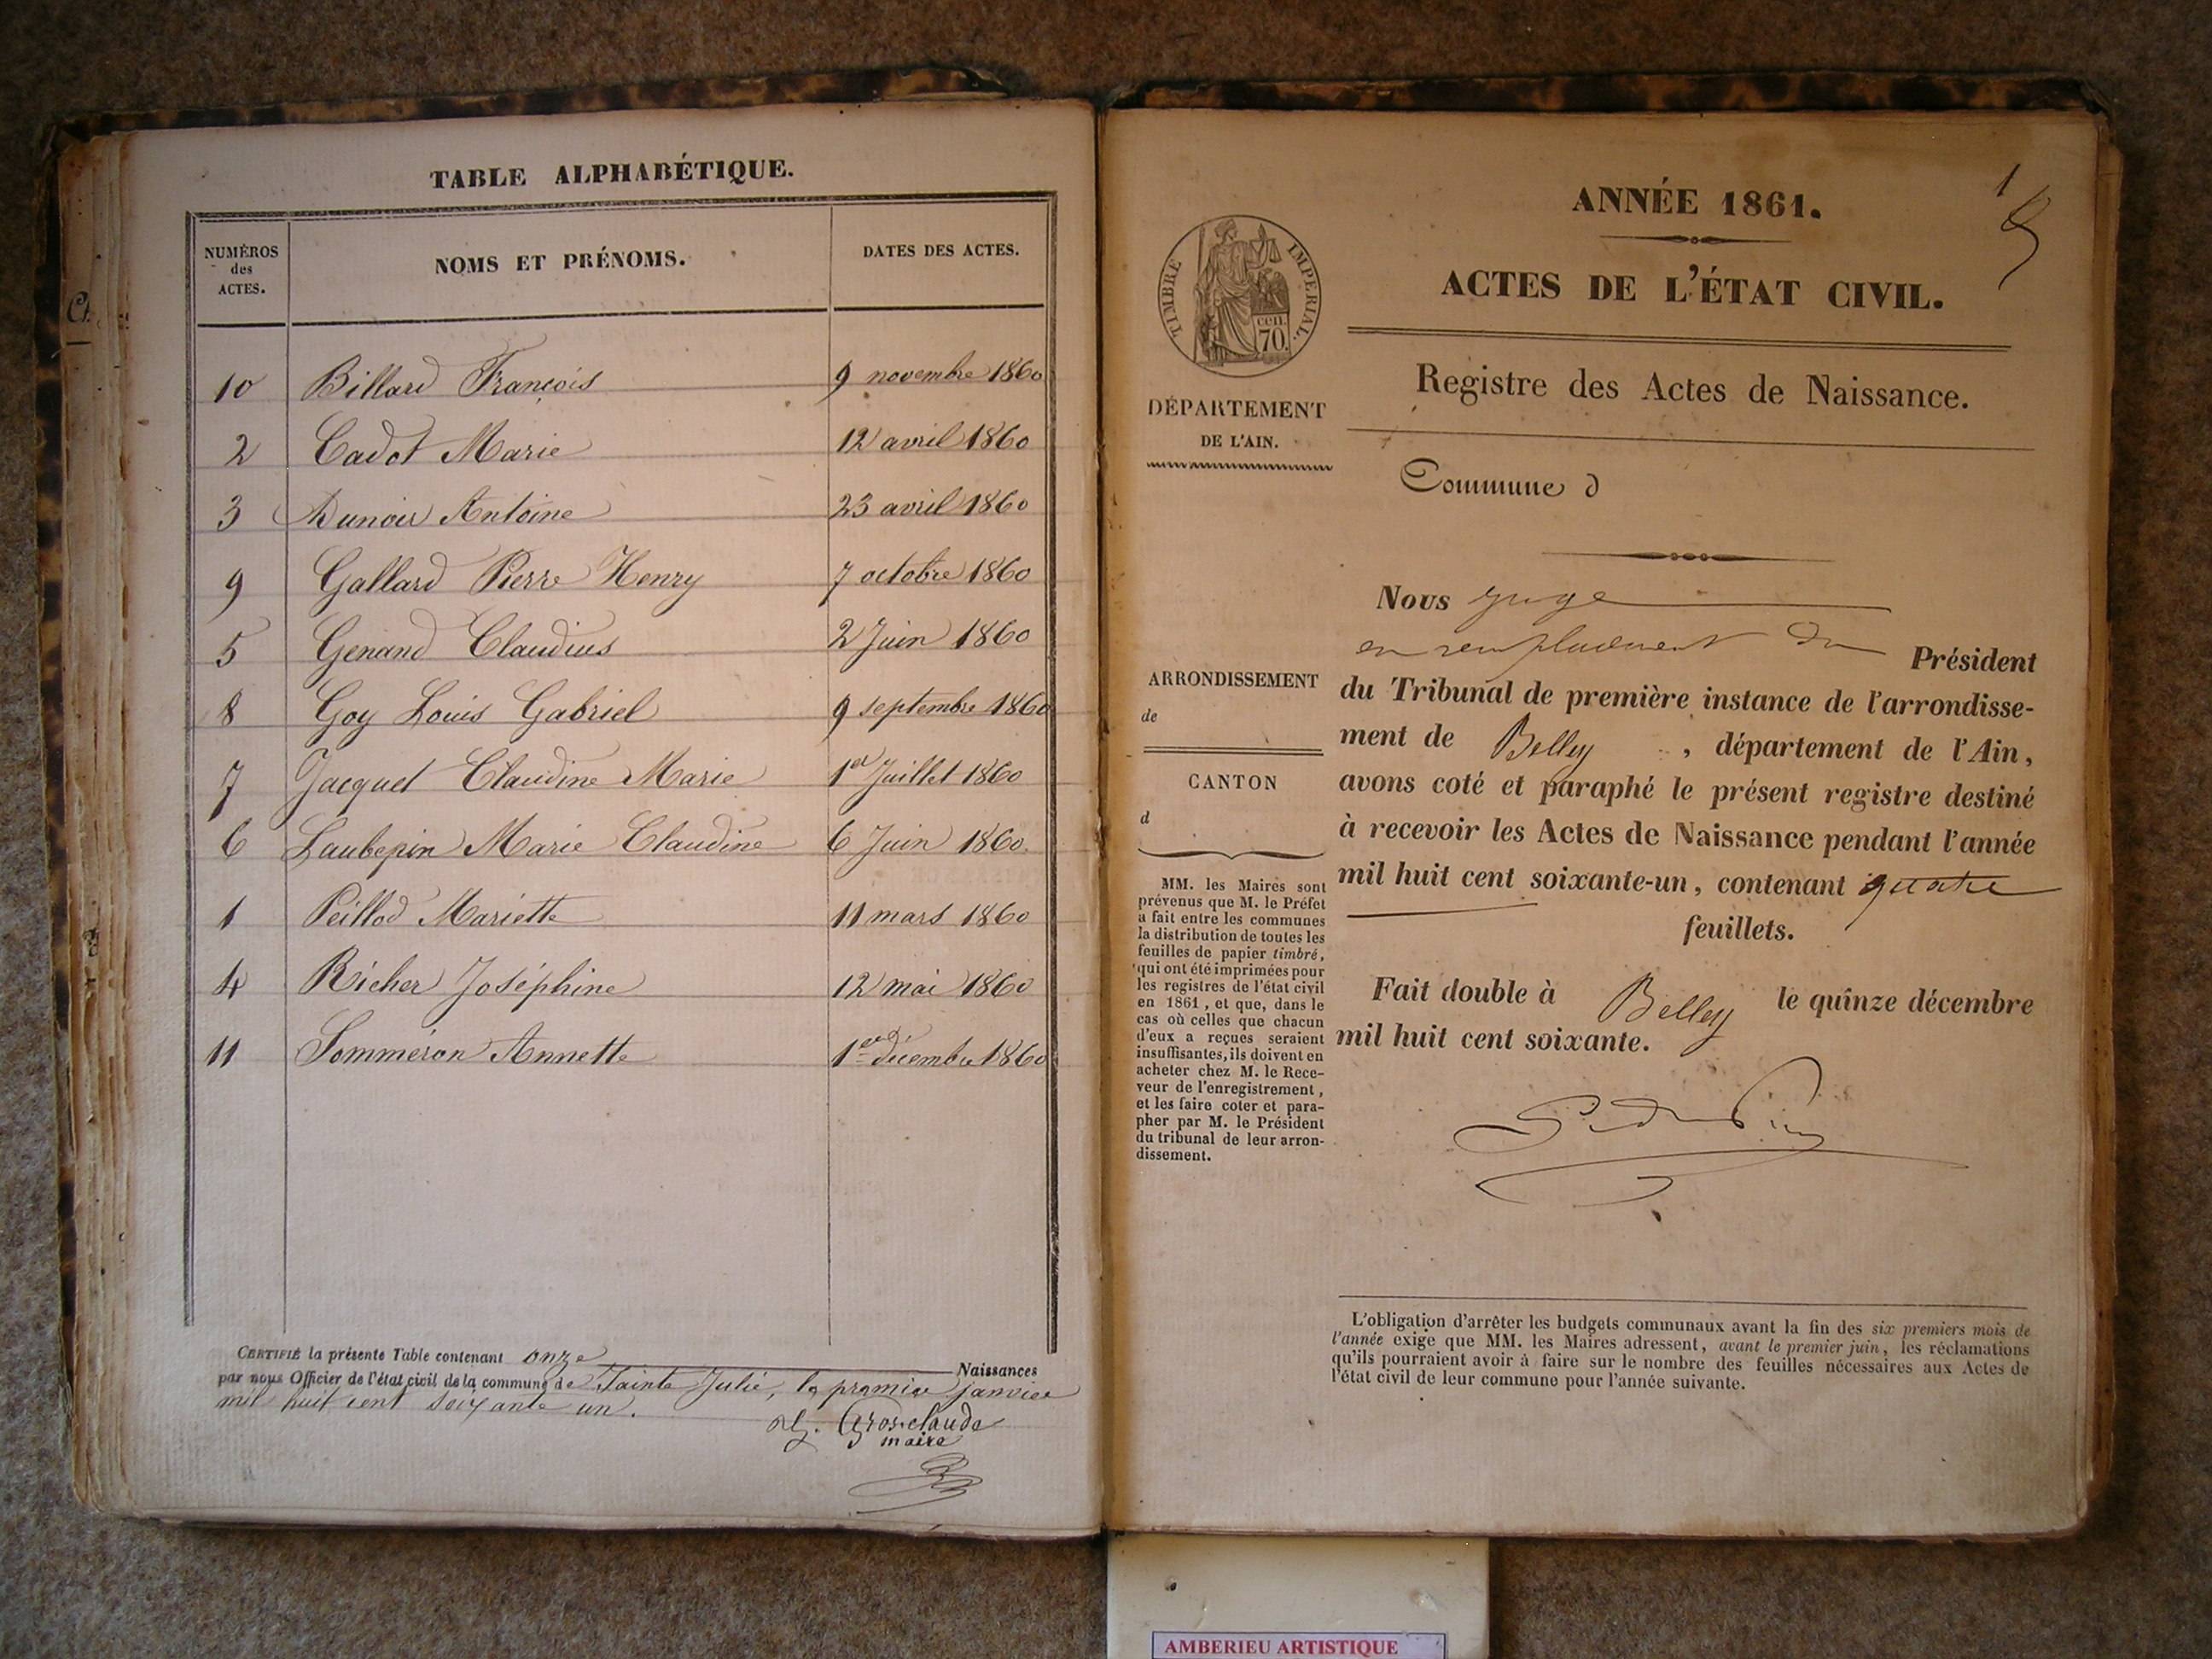 TABLE ALPHABÉTIQUE.
NUMÉROS des ACTES. NOMS ET PRÉNOMS. DATES DES ACTES.
10 Billard François 9 novembre 1860
2 Cadot Marie 12 avril 1860
3 Dunoir Antoine 23 avril 1860
9 Gallard Pierre Henry 7 octobre 1860
5 Genand Claudius 2 Juin 1860
8 Goy Louis Gabriel 9 septembre 1860
7 Jacquet Claudine Marie 1er Juillet 1860
6 Laubepin Marie Claudine 6 Juin 1860
1 Peillod Mariette 11 mars 1860
4 Richer Joséphine 12 mai 1860
11 Sommeron Annette 1er décembre 1860
CERTIFIÉ la présente Table contenant onze Naissances
par nous Officier de l'état civil de la commune de Sainte Julie, le premier janvier
mil huit cent soixante un.
Grosclaude
maire
1
ANNÉE 1861.
ACTES DE L'ÉTAT CIVIL.
TIMBRE IMPERIAL.
cen. 70.
Registre des Actes de Naissance.
DÉPARTEMENT
DE L'AIN.
Commune d
Nous juge
en remplacement du Président
ARRONDISSEMENT
de
CANTON
d
du Tribunal de première instance de l'arrondisse-
ment de Belley, département de l'Ain,
avons coté et paraphé le présent registre destiné
à recevoir les Actes de Naissance pendant l'année
mil huit cent soixante-un, contenant quatre
feuillets.
MM. les Maires sont
prévenus que M. le Préfet
a fait entre les communes
la distribution de toutes les
feuilles de papier timbré,
qui ont été imprimées pour
les registres de l'état civil
en 1861, et que, dans le
cas où celles que chacun
d'eux a reçues seraient
insuffisantes, ils doivent en
acheter chez M. le Rece-
veur de l'enregistrement,
et les faire coter et para-
pher par M. le Président
du tribunal de leur arron-
dissement.
Fait double à Belley le quinze décembre
mil huit cent soixante.
L'obligation d'arrêter les budgets communaux avant la fin des six premiers mois de
l'année exige que MM. les Maires adressent, avant le premier juin, les réclamations
qu'ils pourraient avoir à faire sur le nombre des feuilles nécessaires aux Actes de
l'état civil de leur commune pour l'année suivante.
AMBERIEU ARTISTIQUE